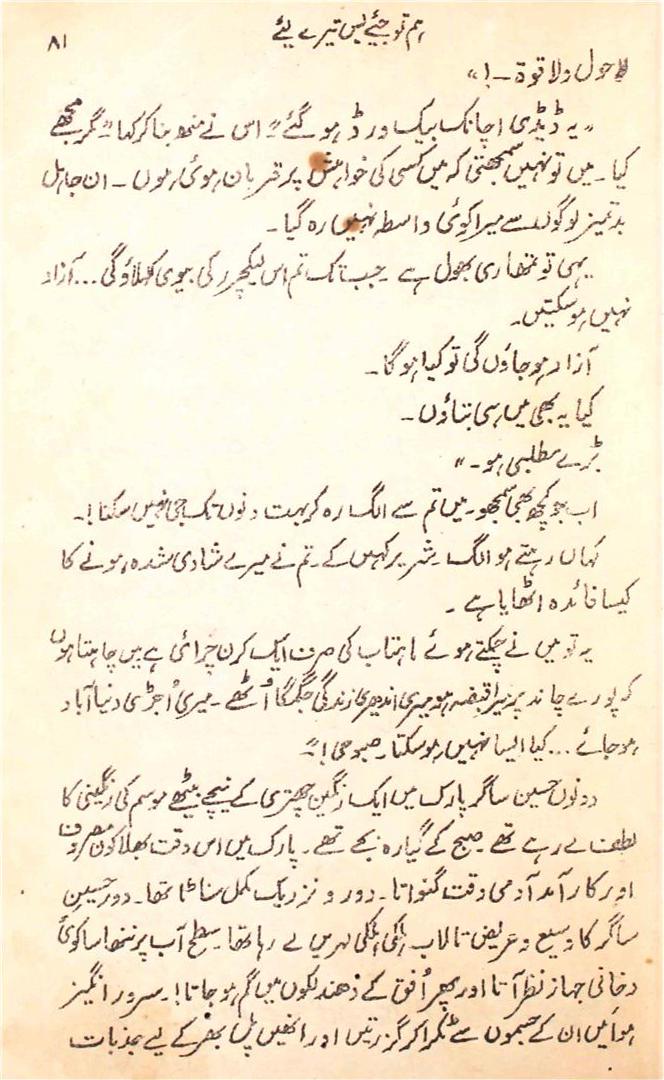 ہم تو جئے بس تیرے لئے
۸۱
لاحول ولاقوۃ ۔!"
"یہ ڈیڈی اچانک بیک ورڈ ہو گئے" اس نے منھ بنا کر کہا "مگر مجھے
کیا۔ میں تو نہیں سمجھتی کہ میں کسی کی خواہش پر قربان ہوئی ہوں ۔ ان جاہل
بدتمیز لوگوں سے میرا کوئی واسطہ نہیں رہ گیا ۔
یہی تو تمھاری بھول ہے ۔ جب تک تم اس لیکچرر کی بیوی کہلاؤ گی ... آزاد
نہیں ہو سکتیں۔
آزاد ہو جاؤں گی تو کیا ہو گا ۔
کیا یہ بھی میں ہی بتاؤں ۔
بڑے مطلبی ہو ۔"
اب جو کچھ بھی سمجھو ۔ میں تم سے الگ رہ کر بہت دنوں تک جی نہیں سکتا!۔
کہاں رہتے ہو الگ ۔ شریر کہیں کے ۔ تم نے میرے شادی شدہ ہونے کا
کیسا فائدہ اٹھایا ہے ۔
یہ تو میں نے چمکتے ہوئے ماہتاب کی صرف ایک کرن چرائی ہے میں چاہتا ہوں
کہ پورے چاند پر میرا قبضہ ہو میری اندھیری زندگی جگمگا اُٹھے ۔ میری اُجڑی دنیا آباد
ہو جائے ... کیا ایسا نہیں ہو سکتا ۔ صبوحی!"
دونوں حسین ساگر پارک میں ایک رنگین چھتری کے نیچے بیٹھے موسم کی رنگینی کا
لطف لے رہے تھے ۔ صبح کے گیارہ بجے تھے ۔ پارک میں اس وقت بھلا کون مصروف
اور کار آمد آدمی وقت گنواتا ۔ دور و نزدیک مکمل سناٹا تھا ۔ دور حسین
ساگر کا وسیع و عریض تالاب ہلکی ہلکی لہریں لے رہا تھا ۔ سطح آب پر ننھا سا کوئی
دخانی جہاز نظر آتا اور پھر اُفق کے دھندلکوں میں گم ہو جاتا! ۔ سرور انگیز
ہوائیں ان کے جسموں سے ٹکرا کر گزرتیں اور انھیں پل بھر کے لیے جذبات